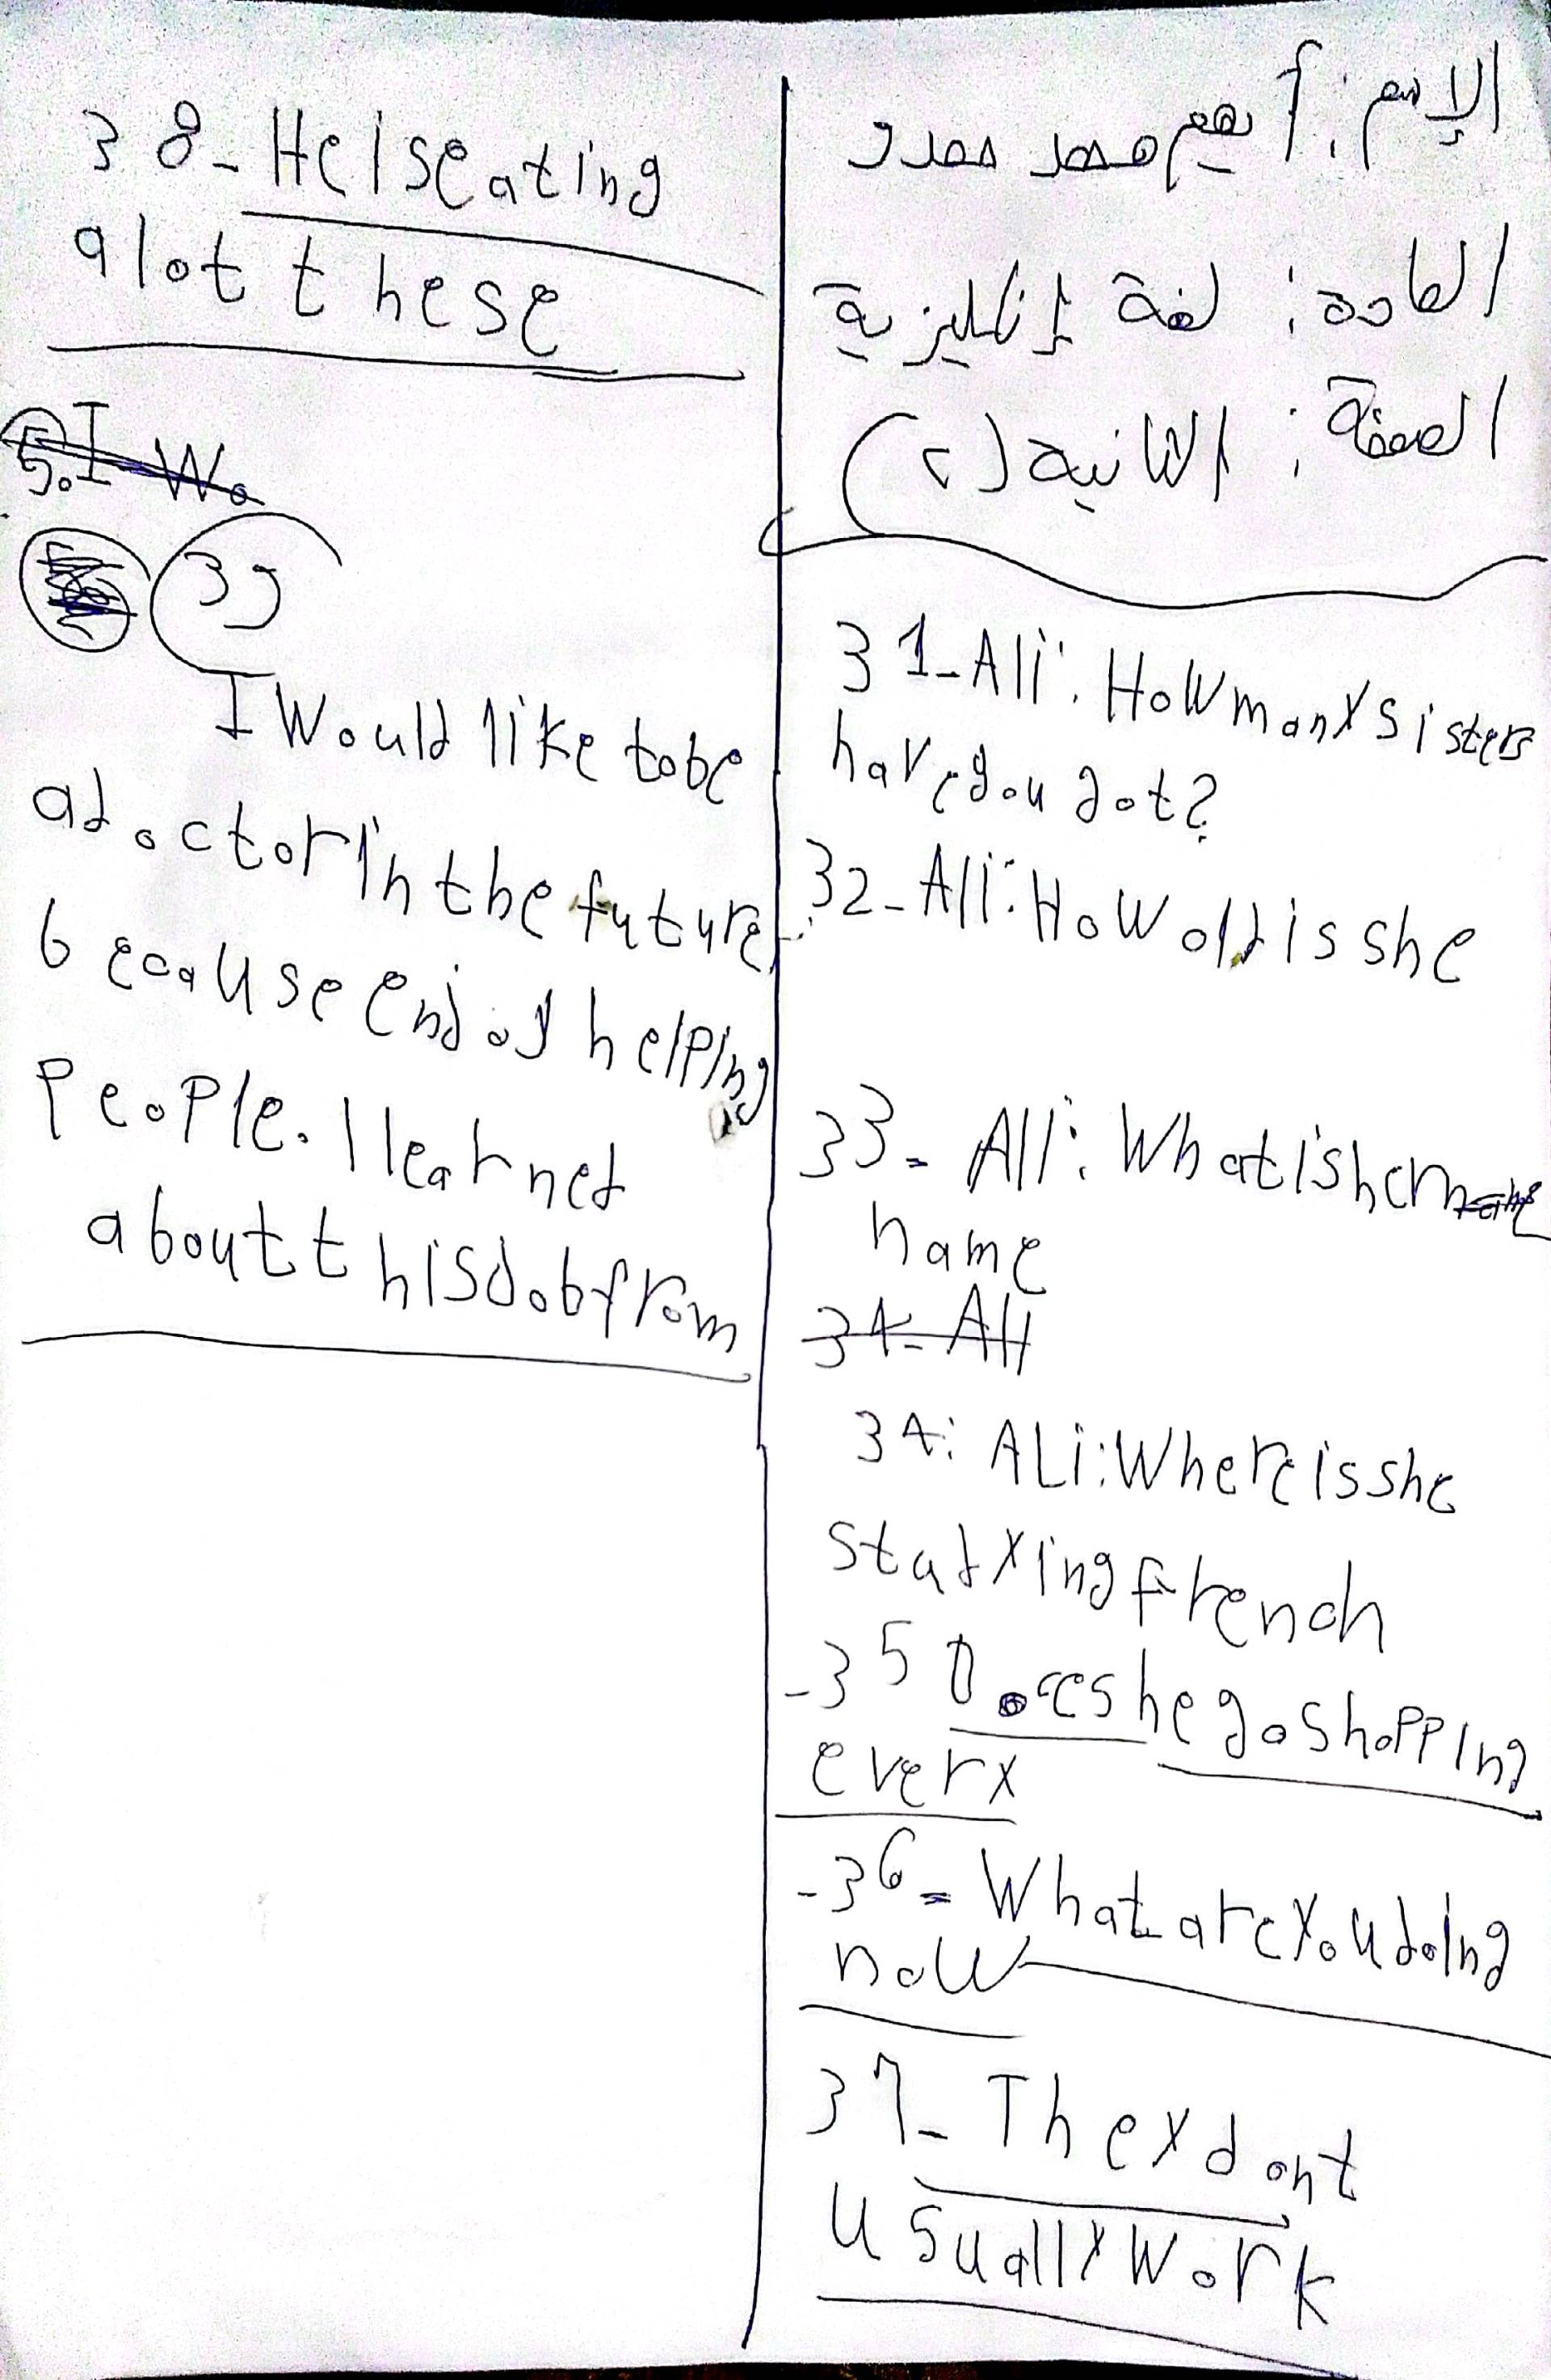 الإسم: أ
المادة: لغة إنكليزية
الصفة: الثانية (2)
31-Ali: How many sisters
have you got?
32-Ali: How old is she
33- Ali: What is her name
name
34- Ali
34: ALi: Where is she
studying french
-35 Does he go shopping
every
-36- What are you doing
now
37- They dont
usually work
38- He is eating
a lot these
5.I Wo
39
I Would like to be
a doctor in the future
because enjoy helping
People. I learned
about this job from